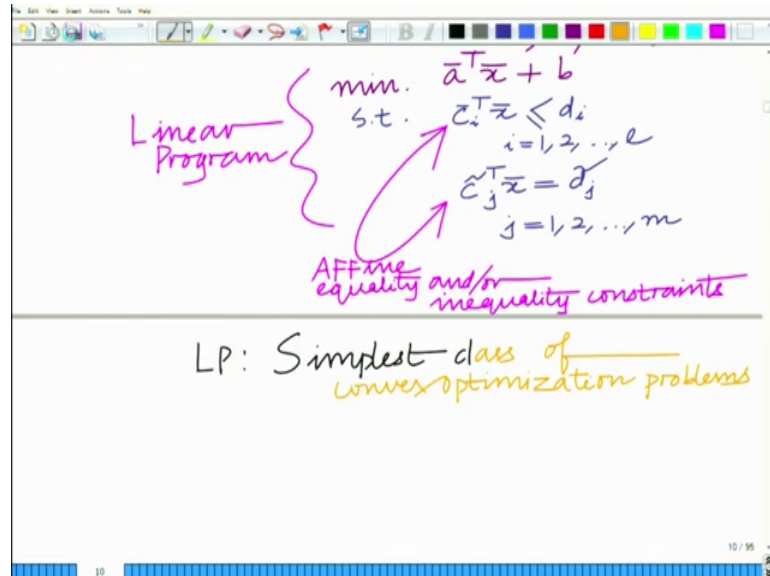 File Edit View Insert Actions Tools Help
B I
min. a̅ᵀx̅ + b
s.t. c̅ᵢᵀx̅ ≤ dᵢ
i = 1, 2, ..., l
Linear
Program
c̃ⱼᵀx̅ = d̃ⱼ
j = 1, 2, ..., m
AFFine
equality and/or
inequality constraints
LP: Simplest class of
convex optimization problems
10 / 95
10